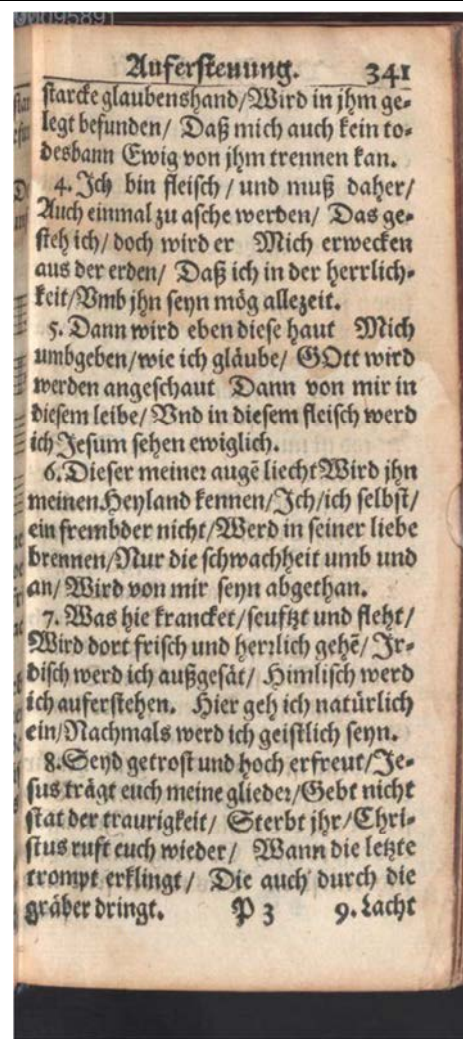 00095891
Auferstehung. 341
starcke glaubenshand/Wird in jhm ge-
legt befunden/ Daß mich auch kein to-
desbann Ewig von jhm trennen kan.
4. Ich bin fleisch / und muß daher/
Auch einmal zu asche werden/ Das ge-
steh ich/ doch wird er Mich erwecken
aus der erden/ Daß ich in der herrlich-
keit/Vmb jhn seyn mög allezeit.
5. Dann wird eben diese haut Mich
umbgeben/wie ich gläube/ GOtt wird
werden angeschaut Dann von mir in
diesem leibe/ Vnd in diesem fleisch werd
ich Jesum sehen ewiglich.
6. Dieser meiner augē liecht Wird jhn
meinen Heyland kennen/Ich/ich selbst/
ein frembder nicht/Werd in seiner liebe
brennen/Nur die schwachheit umb und
an/ Wird von mir seyn abgethan.
7. Was hie krancket/seufftzt und fleht/
Wird dort frisch und herrlich gehē/ Ir-
disch werd ich außgesät/ Himlisch werd
ich auferstehen. Hier geh ich natürlich
ein/Nachmals werd ich geistlich seyn.
8. Seyd getrost und hoch erfreut/Je-
sus trägt euch meine glieder/Gebt nicht
stat der traurigkeit/ Sterbt jhr/Chri-
stus ruft euch wieder/ Wann die letzte
trompt erklingt/ Die auch durch die
gräber dringt. P 3 9. Lacht